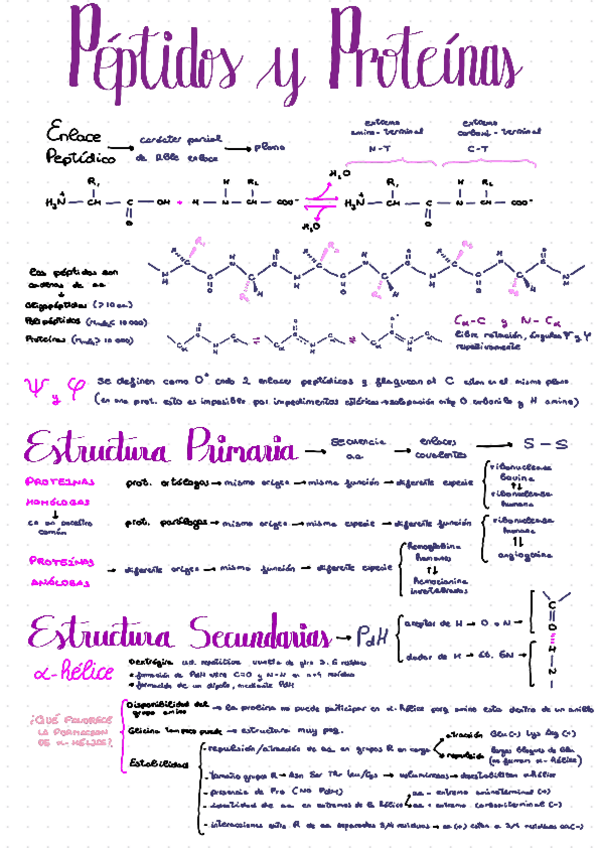 Péptidos y Proteínas
Enlace Peptídico → carácter parcial de doble enlace → plano
extremo amino-terminal N-T
extremo carboxi-terminal C-T
H₂O
H₃N⁺ — CH — C — OH + H — N — CH — COO⁻
H₃N⁺ — CH — C — N — CH — COO⁻
H₂O
Los péptidos son cadenas de aa
Oligopéptidos (>10 aa)
Polipéptidos
Proteínas
Cα-C y N-Cα
libre rotación, ángulos Ψ y φ respectivamente
Ψ y φ se definen como 0° cndo 2 enlaces peptídicos q flanquean al C están en el mismo plano
(en una prot. esto es imposible por impedimentos estéricos → solapación entre O carbonilo y H amino)
Estructura Primaria → secuencia aa → enlaces covalentes → S-S
PROTEINAS HOMÓLOGAS
↓
común
prot. ortólogas → mismo origen → misma función → diferente especie
ribonucleasa bovina
↑↓
ribonucleasa humana
prot. parálogas → mismo origen → misma especie → diferente función
ribonucleasa humana
↑↓
angiogenina
PROTEÍNAS ANÁLOGAS → diferente origen → misma función → diferente especie
Hemoglobina humana
↑↓
Hemocianina invertebrados
Estructura Secundarias → PdH
aceptor de H → O o N
dador de H →
C
O
H
N
α-hélice
Dextrógira
vuelta de giro 3.6 residuos
• formación de PdH entre C=O y N-H en n+4 residuo
• formación de un dipolo, mediante PdH
¿QUÉ FAVORECE LA FORMACIÓN DE α-HÉLICE?
Disponibilidad del grupo amino → la prolina no puede participar en α-hélice porq amino esta dentro de un anillo
Glicina tampoco puede → estructura muy peq.
Estabilidad
- repulsión/atracción de aa en grupos R en carga
atracción Glu (-) Lys Arg (+)
repulsión largos bloques de Glu (no forman α-hélice)
- tamaño grupo R → Asn Ser Thr Leu/Cys → voluminosos → desestabilizan α-hélice
- presencia de Pro (NO PdH)
- identidad de aa en extremos de la hélice
aa - extremo aminoterminal (+)
aa + extremo carboxiterminal (-)
- interacciones entre R de aa separados 3/4 residuos → aa (+) están a 3/4 residuos aa (-)